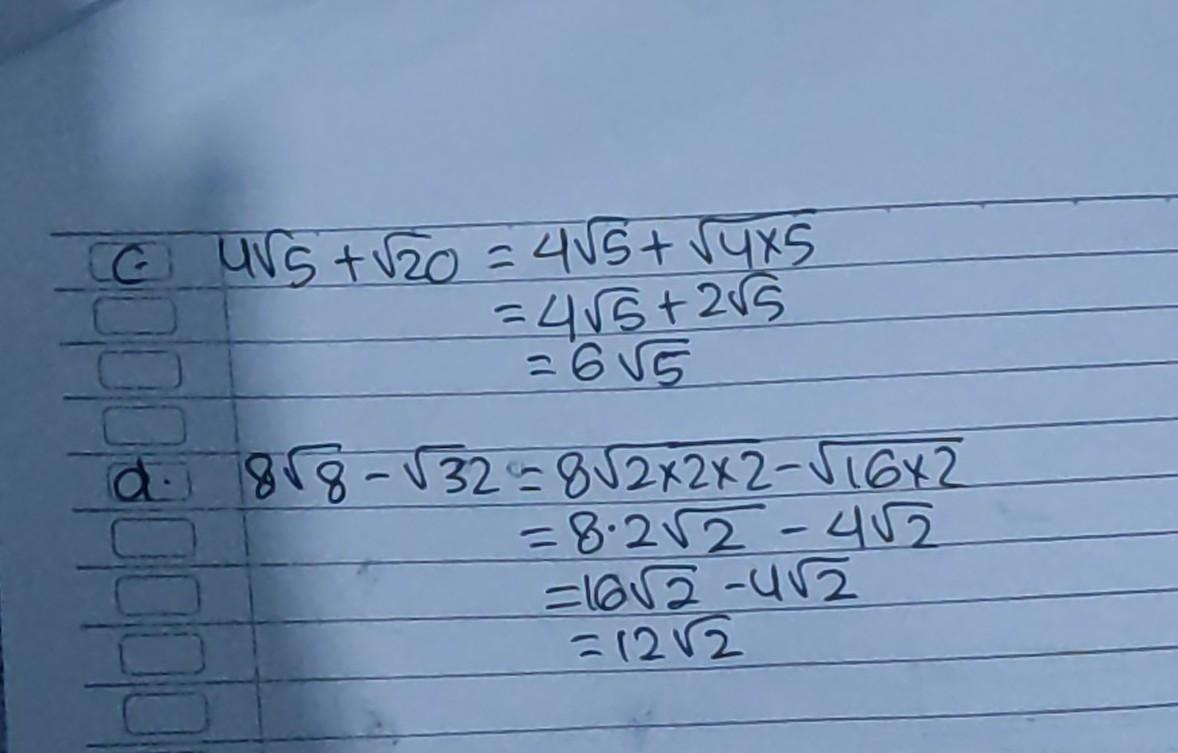 c. 4√5 + √20 = 4√5 + √4×5
= 4√5 + 2√5
= 6√5
d. 8√8 - √32 = 8√2×2×2 - √16×2
= 8·2√2 - 4√2
= 16√2 - 4√2
= 12√2